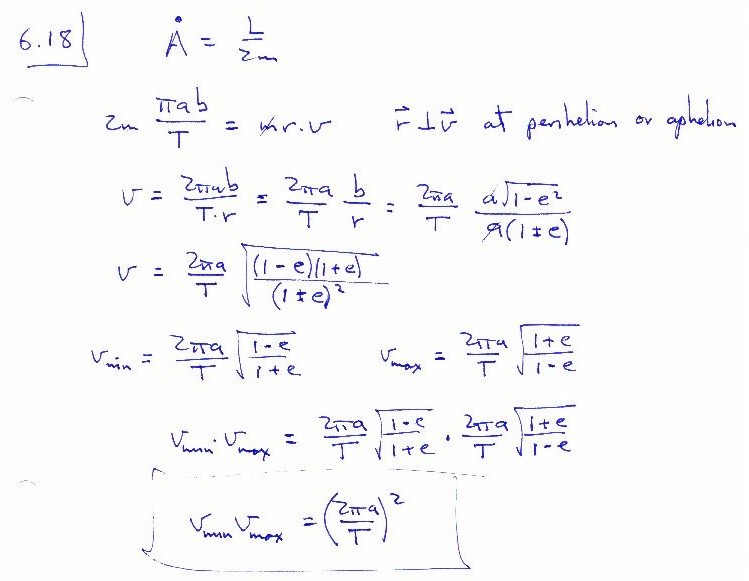 6.18 Ȧ = L/2m
2m πab/T = mr·v r⃗ ⊥ v⃗ at perihelion or aphelion
v = 2πab/T·r = 2πa/T b/r = 2πa/T a√(1-e²)/a(1±e)
v = 2πa/T √((1-e)(1+e)/(1±e)²)
v_min = 2πa/T √((1-e)/(1+e)) v_max = 2πa/T √((1+e)/(1-e))
v_min·v_max = 2πa/T √((1-e)/(1+e)) · 2πa/T √((1+e)/(1-e))
v_min v_max = (2πa/T)²